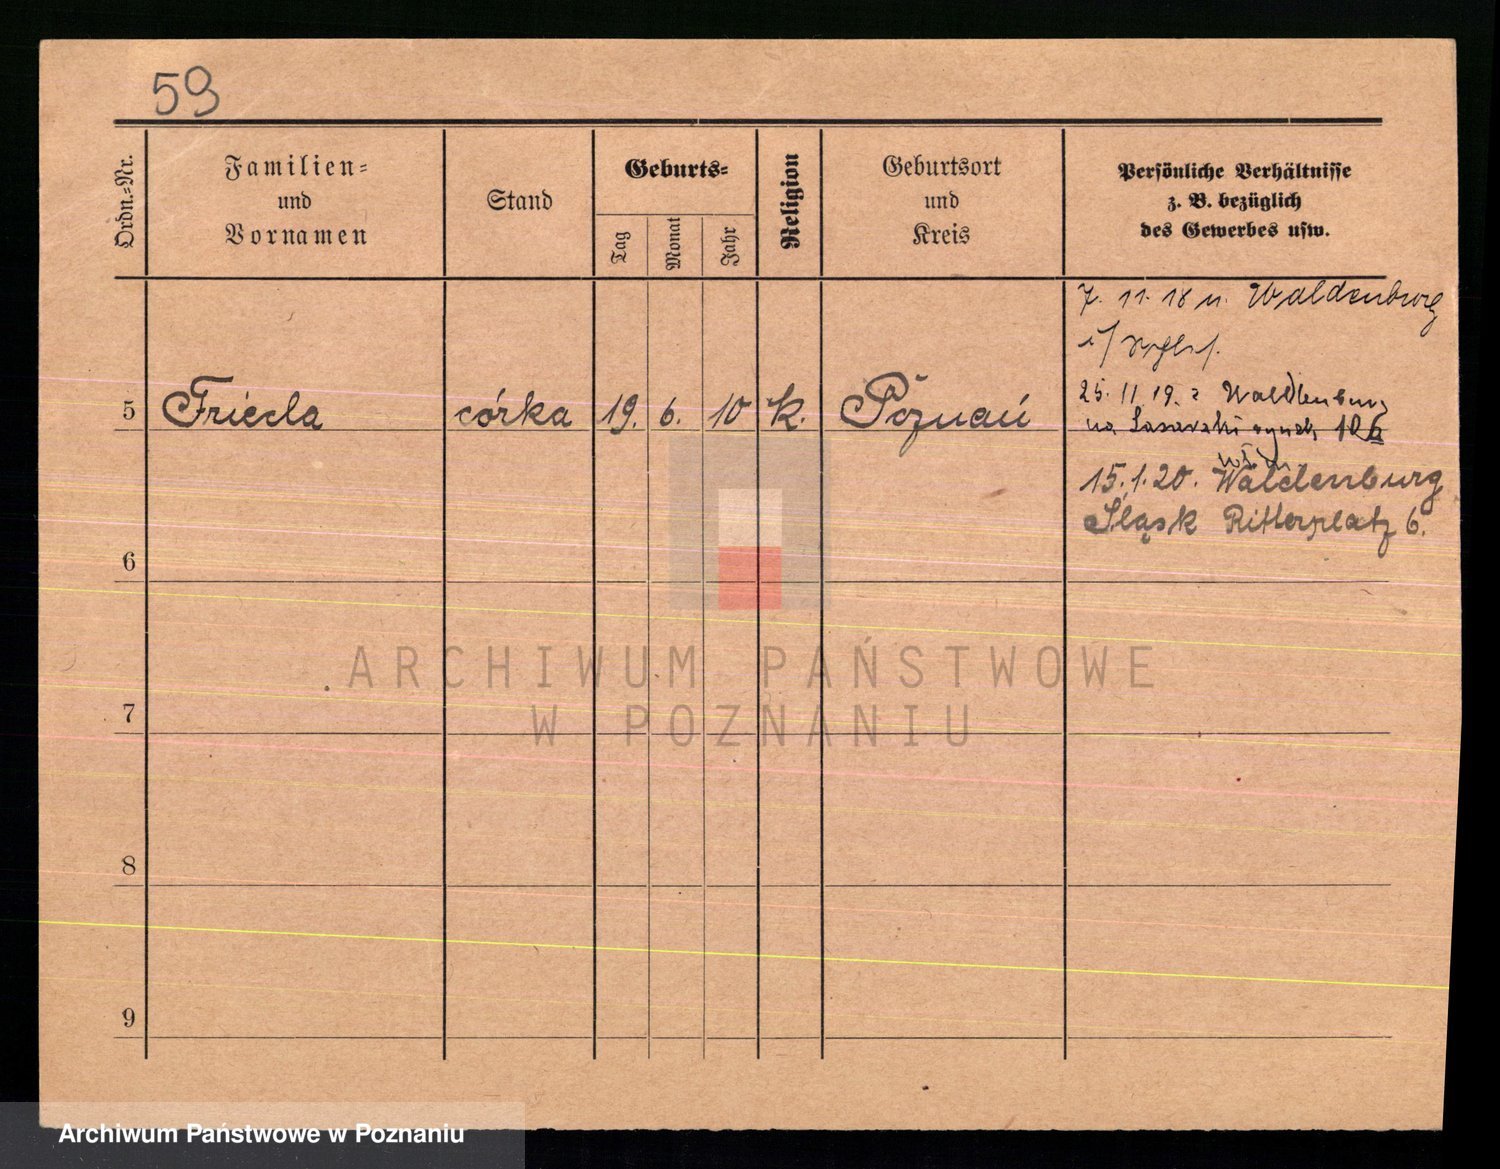 59
Ordn.=Nr.
Familien=
und
Vornamen
Stand
Geburts=
Tag
Monat
Jahr
Religion
Geburtsort
und
Kreis
Persönliche Verhältnisse
z. B. bezüglich
des Gewerbes usw.
7. 11. 18 n. Waldenburg
i/
5 Frieda córka 19. 6. 10 k. Poznań
25. 11. 19. z Waldenburg
na Lasarski rynek 10
15. 1. 20. Waldenburg
Śląsk Ritterplatz 6.
6
7
8
9
ARCHIWUM PAŃSTWOWE
W POZNANIU
Archiwum Państwowe w Poznaniu